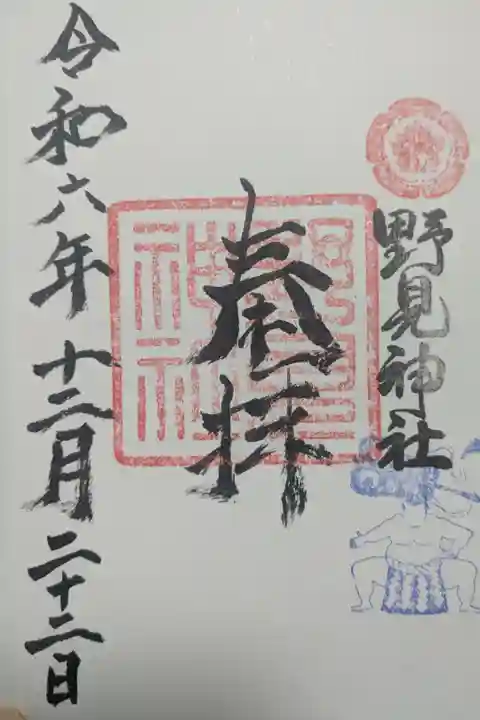 野見神社
奉拝
野見
神社
令和六年十二月二十二日